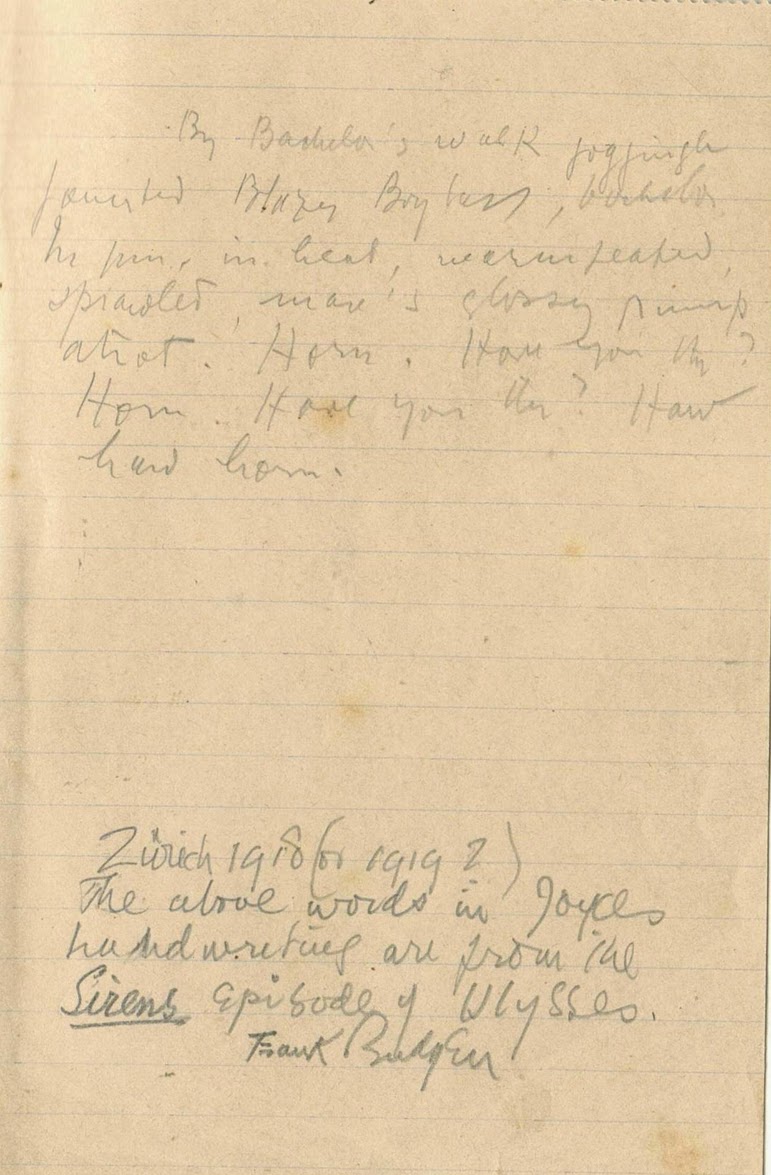 By Bachelor's walk
jaunted Blazes Boylan, bachelor
In sun, in heat, warmseated,
sprawled, mare's glossy rump
atrot. Horn. Have you the?
Horn. Have you the? Haw
haw horn.
Zürich 1918 (or 1919?)
The above words in Joyces
handwriting are from the
Sirens episode of Ulysses.
Frank Budgen